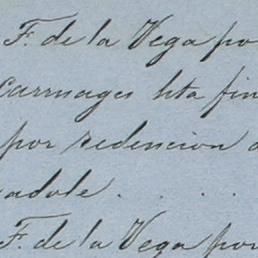 F. de la Vega po
carruages hta fin
por redencion d
adole . . . .
F. de la Vega por